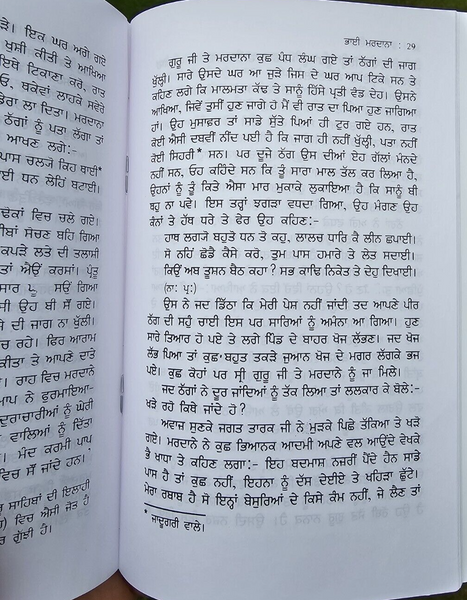 ੜੇ। ਇਕ ਘਰ ਅਗੇ ਗਏ
ਖੁਸ਼ੀ ਕੀਤੀ ਤੇ ਆਖਿਆ
ਇਥੇ ਟਿਕਾਣਾ ਕਰੋ, ਰਾਤ
ਓ, ਥਕੇਵਾਂ ਲਾਹਕੇ ਸਵੇਰੇ
ਡੇਰਾ ਲਾ ਦਿਤਾ। ਮਰਦਾਨਾ
ਠੱਗਾਂ ਨੂੰ ਪਤਾ ਲੱਗਾ ਤਾਂ
ਆਖਣ ਲਗੇ:-
ਪਾਸ ਚਲ੍ਯੋ ਕਿਹ ਥਾਈ*
ਈ ਧਨ ਲੇਹਿੰ ਬਟਾਈ।
ਢੰਕਾਂ ਵਿਚ ਚਲੇ ਗਏ।
ਬੀਬਾਂ ਸੋਚਣ ਬਹਿ ਗਿਆ
ਕਪੜੇ ਲਤੇ ਦੀ ਤਲਾਸ਼ੀ
ਤਾਂ ਐਉਂ ਕਰਸਾਂ। ਪ੍ਰੰਤੂ
ਸਾਰ ਪੂ ਸਉਂ ਗਿਆ
ਉਹ ਬੀ ਸੌਂ ਗਏ।
ਦੀ ਜਾਗ ਨਾ ਖੁੱਲੀ।
ਚ ਰਹੇ। ਵਿਰ ਆਰਾਮ
ਕੀਤਾ ਤੇ ਆਪਣੇ ਦਾਤੇ
ਏ। ਰਾਹ ਵਿਚ ਮਰਦਾਨੇ
ਪ ਨੇ ਫੁਰਮਾਇਆ-
ਦੁਰਾਚਾਰੀਆਂ ਨੂੰ ਘੇਰੀ
ਵਾਲਿਆਂ ਨੂੰ ਦਿੱਤਾ
। ਮੰਦ ਕਰਮੀ ਪਾਪ
ਵਿਚ ਸੌਂ ਜਾਂਦੇ ਹਨ।
ਰ ਸਾਹਿਬਾਂ ਦੀ ਇਲਾਹੀ
) ਵਿਚ ਐਸੀ ਜੋੜ ਹੈ
ਗੁੰਝੀ ਹੈ।
ਭਾਈ ਮਰਦਾਨਾ : 29
ਗੁਰੂ ਜੀ ਤੇ ਮਰਦਾਨਾ ਕੁਛ ਪੰਧ ਲੰਘ ਗਏ ਤਾਂ ਠੱਗਾਂ ਦੀ ਜਾਗ
ਖੁੱਲ੍ਹੀ। ਸਾਰੇ ਉਸਦੇ ਘਰ ਆ ਜੁੜੇ ਜਿਸ ਦੇ ਘਰ ਆਪ ਟਿਕੇ ਸਨ ਤੇ
ਕਹਿਣ ਲਗੇ ਕਿ ਮਾਲਮਤਾ ਕੱਢ ਤੇ ਸਾਨੂੰ ਹਿੱਸੇ ਪ੍ਰਤੀ ਵੰਡ ਦੇਹ। ਉਸਨੇ
ਆਖਿਆ, ਜਿਵੇਂ ਤੁਸੀਂ ਹੁਣ ਜਾਗੇ ਹੋ ਮੈਂ ਵੀ ਰਾਤ ਦਾ ਪਿਆ ਹੁਣ ਜਾਗਿਆ
ਹਾਂ। ਉਹ ਮੁਸਾਫ਼ਰ ਤਾਂ ਸਾਡੇ ਸੁੱਤੇ ਪਿਆਂ ਹੀ ਟੁਰ ਗਏ ਹਨ, ਰਾਤ
ਕੋਈ ਐਸੀ ਦਬਵੀਂ ਨੀਂਦ ਪਈ ਹੈ ਕਿ ਜਾਗ ਹੀ ਨਹੀਂ ਖੁੱਲ੍ਹੀ, ਪਤਾ ਨਹੀਂ
ਕੋਈ ਸਿਹਰੀ* ਸਨ। ਪਰ ਦੂਜੇ ਠੱਗ ਉਸ ਦੀਆਂ ਏਹ ਗੱਲਾਂ ਮੰਨਦੇ
ਨਹੀਂ ਸਨ, ਓਹ ਕਹਿੰਦੇ ਸਨ ਕਿ ਤੂੰ ਸਾਰਾ ਮਾਲ ਤੱਲ ਕਰ ਲਿਆ ਹੈ,
ਉਹਨਾਂ ਨੂੰ ਤੂੰ ਕਿਤੇ ਐਸਾ ਮਾਰ ਮੁਕਾਕੇ ਲੁਕਾਇਆ ਹੈ ਕਿ ਸਾਨੂੰ ਬੀ
ਬਹੁ ਨਾ ਪਵੇ। ਇਸ ਤਰ੍ਹਾਂ ਝਗੜਾ ਵਧਦਾ ਗਿਆ, ਉਹ ਮੰਗਣ ਉਹ
ਕੰਨਾਂ ਤੇ ਹੱਥ ਧਰੇ ਤੇ ਫੇਰ ਉਹ ਕਹਿਣ:-
ਹਾਥ ਲਗ੍ਯੋ ਬਹੁਤੋ ਧਨ ਤੇ ਕਹੁ, ਲਾਲਚ ਧਾਰਿ ਕੈ ਲੀਨ ਛਪਾਈ।
ਸੋ ਨਹਿਂ ਛੋਡੈਂ ਕੈਸੇ ਕਰੇ, ਤੁਮ ਪਾਸ ਹਮਾਰੇ ਤੇ ਲੇਤ ਸਦਾਈ।
ਕਿਉਂ ਅਬ ਤੂਸਨ ਬੈਠ ਕਹਾ? ਸਭ ਕਾਢਿ ਨਿਕੇਤ ਤੇ ਦੇਹੁ ਦਿਖਾਈ।
(ਨਾ: ਪ੍ਰ:)
ਉਸ ਨੇ ਜਦ ਡਿੱਠਾ ਕਿ ਮੇਰੀ ਪੇਸ਼ ਨਹੀਂ ਜਾਂਦੀ ਤਦ ਆਪਣੇ ਪੀਰ
ਠੱਗ ਦੀ ਸਹੁੰ ਚਾਈ ਇਸ ਪਰ ਸਾਰਿਆਂ ਨੂੰ ਅਮੰਨਾ ਆ ਗਿਆ। ਹੁਣ
ਸਾਰੇ ਤਿਆਰ ਹੋ ਪਏ ਤੇ ਲਗੇ ਪਿੰਡ ਦੇ ਬਾਹਰ ਖੋਜ ਲੱਭਣ। ਜਦ ਖੋਜ
ਲੱਭ ਪਿਆ ਤਾਂ ਕੁਛ ਬਹੁਤ ਤਕੜੇ ਜੁਆਨ ਖੋਜ ਦੇ ਮਗਰ ਲੱਗਕੇ ਭੱਜ
ਪਏ। ਕੁਛ ਕੋਹਾਂ ਪਰ ਸ੍ਰੀ ਗੁਰੂ ਜੀ ਤੇ ਮਰਦਾਨੇ ਨੂੰ ਜਾ ਮਿਲੇ।
ਜਦ ਠੱਗਾਂ ਨੇ ਦੂਰ ਜਾਂਦਿਆਂ ਨੂੰ ਤੱਕ ਲਿਆ ਤਾਂ ਲਲਕਾਰ ਕੇ ਬੋਲੇ:-
ਖੜੇ ਰਹੋ ਕਿਥੇ ਜਾਂਦੇ ਹੋ?
ਅਵਾਜ਼ ਸੁਣਕੇ ਜਗਤ ਤਾਰਕ ਜੀ ਨੇ ਮੁੜਕੇ ਪਿਛੇ ਤੱਕਿਆ ਤੇ ਖੜੋ
ਗਏ। ਮਰਦਾਨੇ ਨੇ ਕੁਛ ਭਿਆਨਕ ਆਦਮੀ ਅਪਣੇ ਵਲ ਆਉਂਦੇ ਵੇਖਕੇ
ਭੈ ਖਾਧਾ ਤੇ ਕਹਿਣ ਲਗਾ:- ਇਹ ਬਦਮਾਸ਼ ਨਜ਼ਰੀਂ ਪੈਂਦੇ ਹੈਨ ਸਾਡੇ
ਪਾਸ ਹੈ ਤਾਂ ਕੁਛ ਨਹੀਂ, ਇਹਨਾਂ ਨੂੰ ਦੱਸ ਦੇਈਏ ਤੇ ਖਹਿੜਾ ਛੁੱਟੇ।
ਮੇਰਾ ਰਬਾਬ ਹੈ ਸੋ ਇਨ੍ਹਾਂ ਬੇਸੁਰਿਆਂ ਦੇ ਕਿਸੇ ਕੰਮ ਨਹੀਂ, ਜੇ ਲੈਣ ਤਾਂ
* ਜਾਦੂਗਰੀ ਵਾਲੇ।